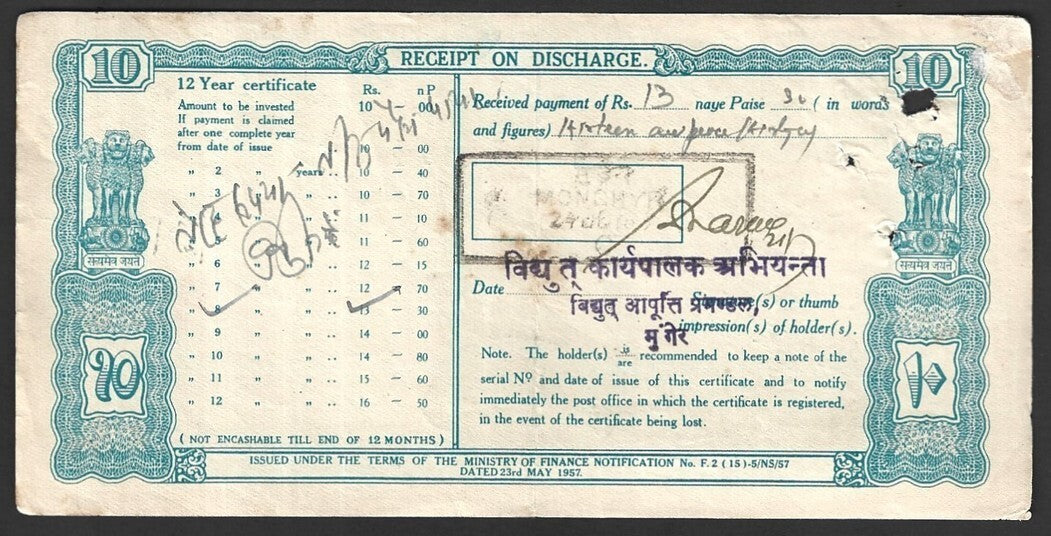 RECEIPT ON DISCHARGE.
10
10
12 Year certificate
Rs. nP
Amount to be invested 10 — 00
If payment is claimed
after one complete year
from date of issue 10 — 00
" 2 " years .. 10 — 40
" 3 " " .. 10 — 70
" " .. 11 — 10
" 5 " " .. 11 — 60
" 6 " " .. 12 — 15
" 7 " " .. 12 — 70
" 8 " " .. 13 — 30
" 9 " " .. 14 — 00
" 10 " " .. 14 — 80
" 11 " " .. 15 — 60
" 12 " " .. 16 — 50
(NOT ENCASHABLE TILL END OF 12 MONTHS)
Received payment of Rs. 13 naye Paise 30 (in words
and figures)
MONGHYR
विद्युत् कार्यपालक अभियन्ता
Date
विद्युत् आपूर्ति प्रमण्डल,
(s) or thumb
मुंगेर
impression(s) of holder(s).
Note. The holder(s) is/are recommended to keep a note of the
serial Nº and date of issue of this certificate and to notify
immediately the post office in which the certificate is registered,
in the event of the certificate being lost.
सत्यमेव जयते
सत्यमेव जयते
१०
ISSUED UNDER THE TERMS OF THE MINISTRY OF FINANCE NOTIFICATION No. F. 2 (15)-5/NS/57
DATED 23rd MAY 1957.